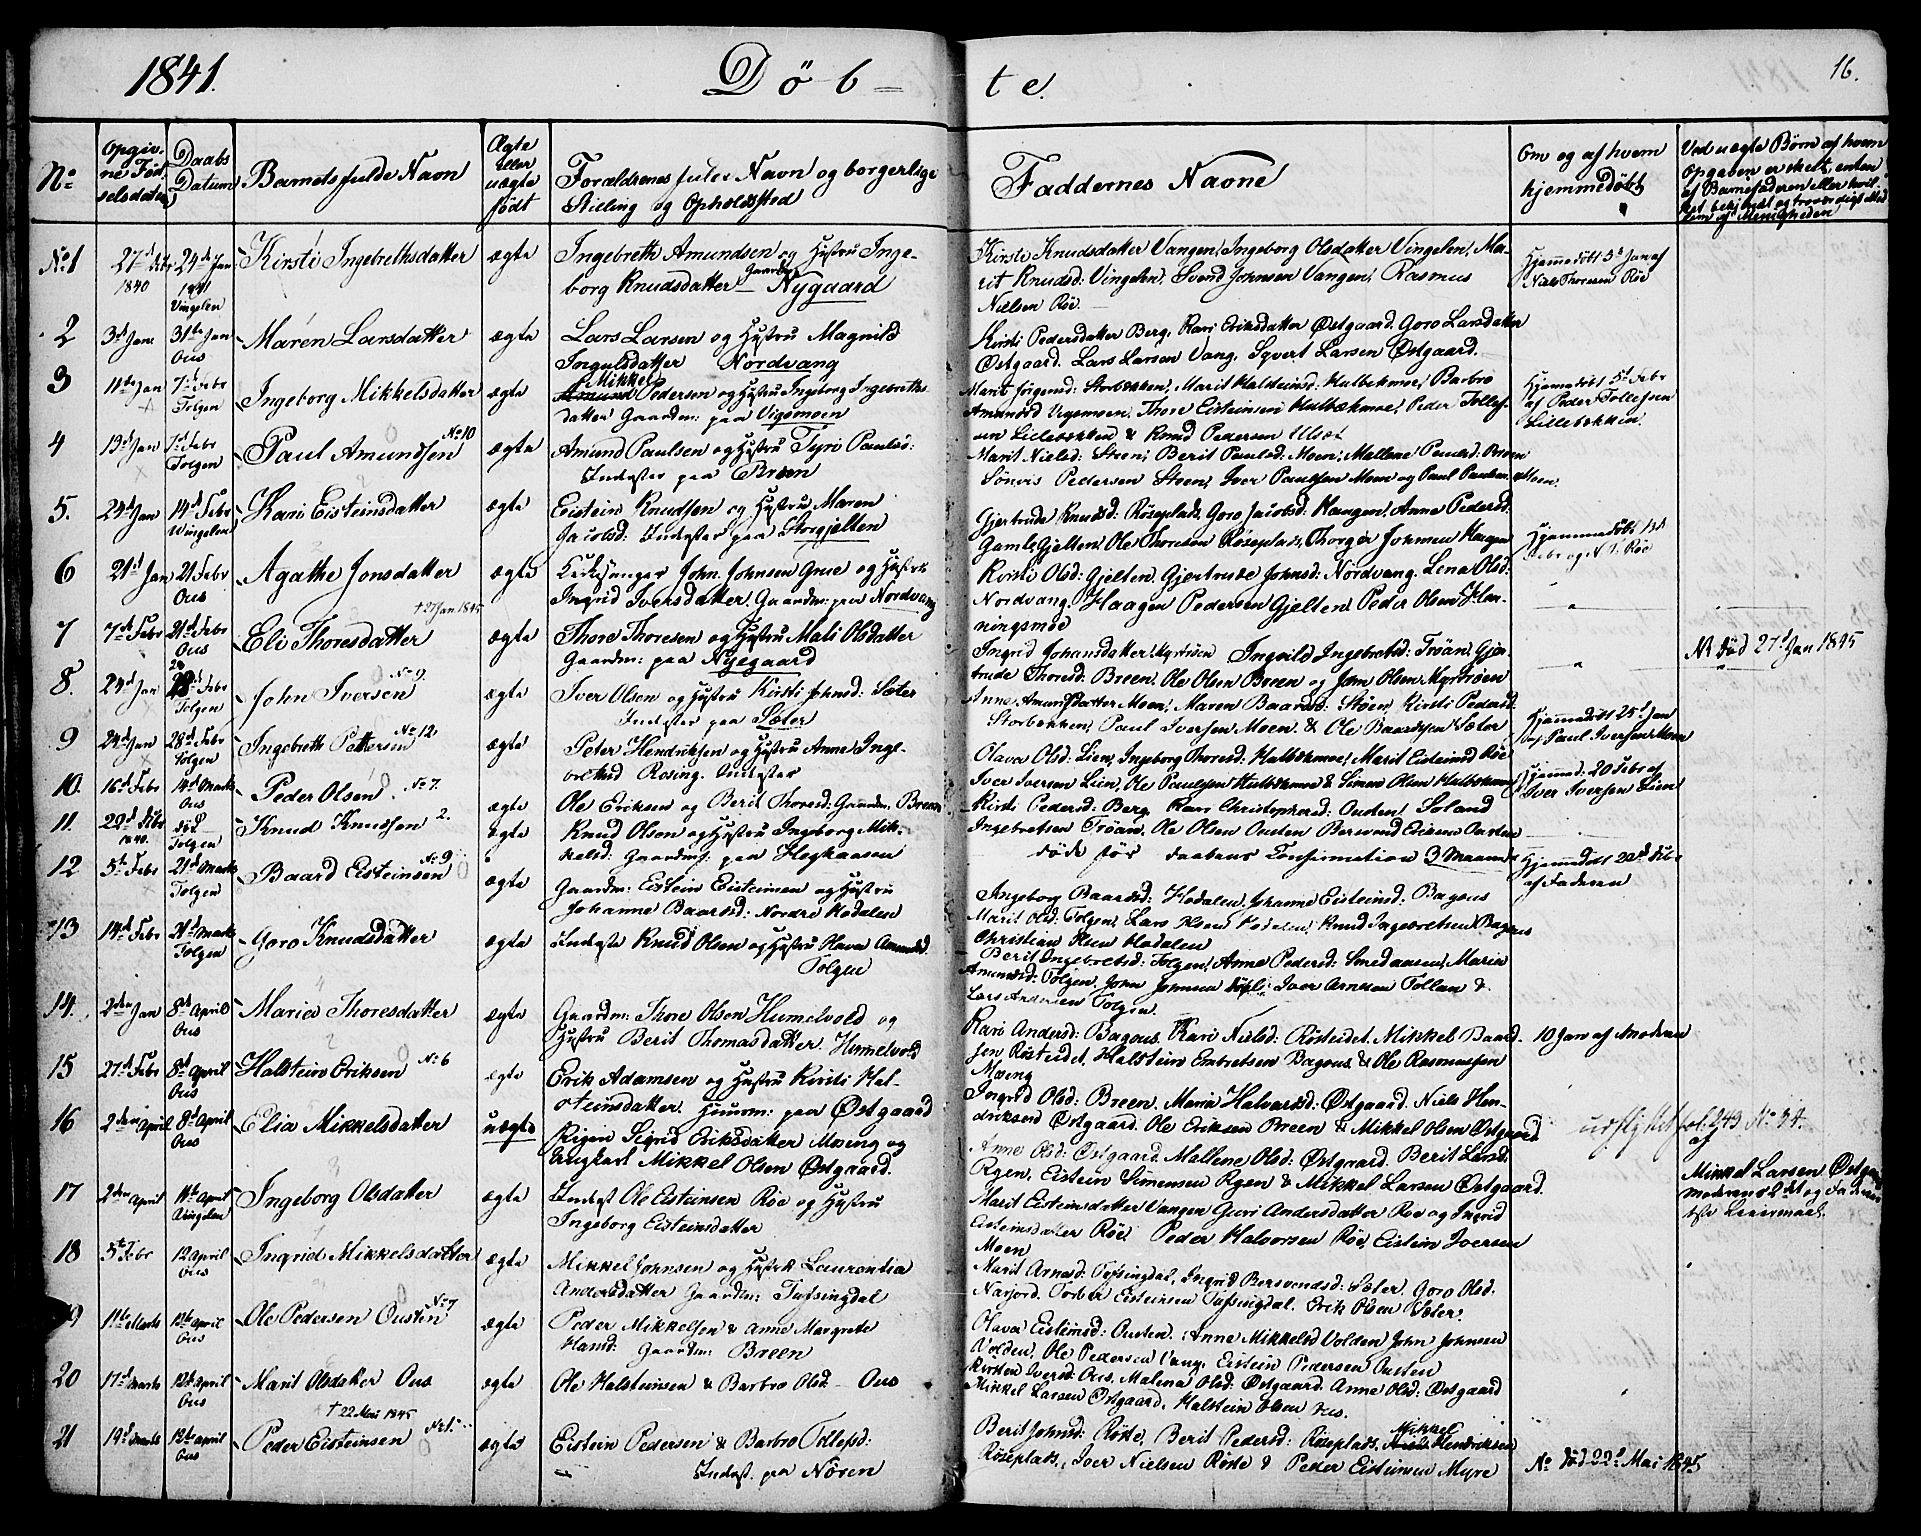 1841. Döb-te. 16.
No Opgivne Fødselsdatum Daabs Datum Barnets fulde Navn Ægte eller uægte født Forældrenes fulde Navn og borgerlige Stilling og Opholdssted Faddernes Navne Om og af hvem hjemmedöbt Ved uægte Børn af hvem Opgaven er skeet, enten af Barnefaderen eller hvilket bekjendt og troværdigt Medlem af Menigheden
No 1 27d Dbr 1840 24de Jan 1841 Vingelen Kirsti Ingebrethsdatter ægte Ingebreth Amundsen og Hustru Inge-
borg Knudsdatter Gaardm: Nygaard
Kirsti Knudsdatter Vangen, Ingeborg Olsdatter Vingelen, Ma-
rit Knudsd: Vingelen, Svend Johnsen Vangen, Rasmus
Nielsen Röe
Hjemmedöbt 5d Jan af
Niels Thoresen Röe
2 3d Jan 31te Jan Ous Maren Larsdatter ægte Lars Larsen og Hustru Magnild
Ingulsdatter Nordvang
Kirsti Pedersdatter Berg, Kari Eriksdatter Østgaard, Goro Larsdatter
Østgaard. Lars Larsen Vang, Syvert Larsen Østgaard.
3 11te Jan 7d Febr Tolgen Ingeborg Mikkelsdatter ægte Mikkel Pedersen og Hustru Ingeborg Ingebreths-
datter Gaardm: paa Vigsmoen
Marit Jörgensd: Storbekken, Marit Halsteinsd: Hulbekmoe, Barbro
Amundsd Vigsmoen, Thore Eisteinsen Hulbekmoe, Peder Tollef-
sen Lillebekken & Knud Pedersen Ulset
Hjemmedöbt 5d Febr
af Peder Tollefsen
Lillebekken.
4 19d Jan 7d Febr Tolgen Paul Amundsen No 10 ægte Amund Paulsen og Hustru Tyri Paulsd:
Inderster paa Breen
Marit Nielsd: Steen, Berit Paulsd: Moen, Mallene Paulsd: Breen
Sönvis Pedersen Steen, Iver Paulsen Moen og Paul Paulsen Moen.
5. 24d Jan 14d Febr Wingelen Kari Eisteinsdatter ægte Eistein Knudsen og Hustru Maren
Jacobsd: Inderster paa Storgjelten
Gjertrude Knudsd: Röseplads, Goro Jacobsd: Haugen, Anne Pedersd:
Gaml: Gjelten, Ole Thoresen Roseplads, Thorger Johnsen Haugen
Hjemmedöbt 1d
Febr og N. T. Röe
6 21d Jan 21 Febr Ous Agathe Jonsdatter ægte Kirkesanger John Johnsen Grue og Hustru
Ingrid Iversdatter. Gaardm: paa Nordvang
Kirsti Olsd: Gjelten, Gjertrude Johnsd: Nordvang. Lena Olsd:
Nordvang. Haagen Pedersen Gjelten, Peder Olsen Hen-
ningsmoe
7 7de Febr 21d Febr Ous Eli Thoresdatter † 27 Jan 1845 ægte Thore Thoresen og Hustru Mali Olsdatter
Gaardm: paa Nyegaard
Ingrid Johansdatter Myrtröen Ingvild Ingebretsd: Tröan, Gjer-
trude Thoresd: Breen. Ole Olsen Breen og Jon Olsen Myrtröen
No död 27d Jan 1845
8. 24d Jan 28 Febr Tolgen John Iversen No 9 ægte Iver Olsen og Hustru Kirsti Johnsd: Sæter
Inderster paa Sæter
Anne Amundsdatter Moen, Maren Baardsd: Stöen, Kirsti Pedersd
Storbekken, Paul Iversen Moen & Ole Baardsen Sæter
Hjemmedöbt 25d Jan
af Paul Iversen Moen
9 24d Jan 28d Febr Tolgen Ingebreth Pettersen No 12 ægte Peter Hendriksen og Hustru Anne Inge-
brethsd Rosing. Inderster
Olava Olsd: Lien, Ingeborg Thoresd: Hulbekmoe, Marit Eisteinsd Röe
Iver Iversen Lien, Ole Paulsen Hulbekmoe & Simen Olsen Hulbekmoe
Hjemmed: 20 Febr af
Iver Iversen Lien
10. 16d Febr 14d Marts Ous Peder Olsen No 7. ægte Ole Eriksen og Berit Thoresd: Gaardm: Breen
Kirsti Pedersd: Berg, Kari Christophersd: Ousten, Erland
Ingebretsen Tröan, Ole Olsen Ousten Bersvend Eriksen Ousten
11. 29d Dbr 1840. död Tolgen Knud Knudsen 2. ægte Knud Olsen og Hustru Ingeborg Mik-
kelsd: Gaardm: paa Heghaasen
döde för daabens Confirmation 3 Maaneder
Hjemmedöbt 22d Febr
af Faderen
12 5te Febr 21d Marts Tolgen Baard Eisteinsen No 9 ægte Gaardm: Eistein Eisteinsen og Hustru
Johanne Baardsd: Nordre Hodalen
Ingeborg Baardsd: Hodalen, Johanne Eisteinsd: Bagous
Marit Olsd: Tolgen, Lars Olsen Hodalen, Knud Ingebretsen Bagous
Christian Olsen Hodalen
13 14d Febr 21d Marts Tolgen Goro Knudsdatter ægte Inderste Knud Olsen og Hustru Olava Amundsd.
Tolgen
Berit Ingebretsd: Tolgen, Anne Pedersd: Smedaasen, Maria
Amundsd: Tolgen, John Johnsen Iver Arnesen Tollan &
Lars Andersen Tolgen.
14. 2den Jan 8d April Ous Maria Thoresdatter ægte Gaardm: Thore Olsen Humelvold og
Hustru Berit Thomasdatter. Humelvold
Kari Andersd: Bagous. Kari Nielsd: Rösteidet, Mikkel Baard-
sen Rösteidet, Halstein Embretsen Bagous & Ole Rasmussen
Moeng
10 Jan af Moderen
15 27d Febr 8d April Ous Halstein Eriksen No 6 ægte Erik Adamsen og Hustru Kirsti Hal-
steinsdatter. Huusm: paa Østgaard
Ingrid Olsd: Breen. Maria Halvorsd: Østgaard. Niels Hen-
driksen Østgaard. Ole Eriksen Breen & Mikkel Olsen Østgaard
16 2den April 8d April Ous Elia Mikkelsdatter uægte Pigen Sigrid Eriksdatter Moseng og
Ungkarl Mikkel Olsen Østgaard.
Anne Olsd: Østgaard, Mallene Olsd: Østgaard. Berit Larsd:
Rgen, Eistein Simensen Rgen & Mikkel Larsen Østgaard.
udflyttet fol. 243 No 34.
af
Mikkel Larsen Østgaard
Moderens 2det og Faderens
1ste Leiermaal.
17 2den April 11te April Vingelen Ingeborg Olsdatter ægte Inderst Ole Eisteinsen Röe og Hustru
Ingeborg Eisteinsdatter
Marit Eisteinsdatter Vangen Guri Andersdatter Röe og Ingrid
Eisteinsdatter Röe, Peder Halvorsen Röe, Eistein Iversen
Moen
18 5te Febr 12 April Ous Ingrid Mikkelsdatter ægte Mikkel Johnsen og Hustru Laurentia
Andersdatter Gaardm: Tufsingdal
Marit Arnesd: Tufsingdal, Ingrid Bersvendsd: Sæter. Goro Olsd.
Narjord. Torber Eisteinsen Tufsingdal. Erik Olsen Sæter.
19 11te Marts 12te April Ous Ole Pedersen Ousten No 7 ægte Peder Mikkelsen & Anne Margrete
Hansd: Gaardm: Breen
Olava Eisteinsd: Ousten. Anne Mikkelsd Volden John Johnsen
Volden, Ole Pedersen Vang, Eistein Pedersen Ousten
20 17d Marts 12te April Ous Marit Olsdatter Ous ægte Ole Halsteinsen & Barbro Olsd. Ous
Kirsten Iversd: Ous, Malena Olsd: Østgaard. Anne Olsd: Østgaard
Mikkel Larsen Østgaard, Halstein Olsen Ous.
21 19d Marts 12te April Ous Peder Eisteinsen † 22 Mai 1845 No 1. ægte Eistein Pedersen & Barbro Tollefsd:
Inderst. paa Nören
Berit Johnsd: Röste, Berit Pedersd: Röseplads, Mikkel Hendriksen
Röseplads, Iver Nielsen Röste & Peder Eisteinsen Myre
No död 22d Mai 1845